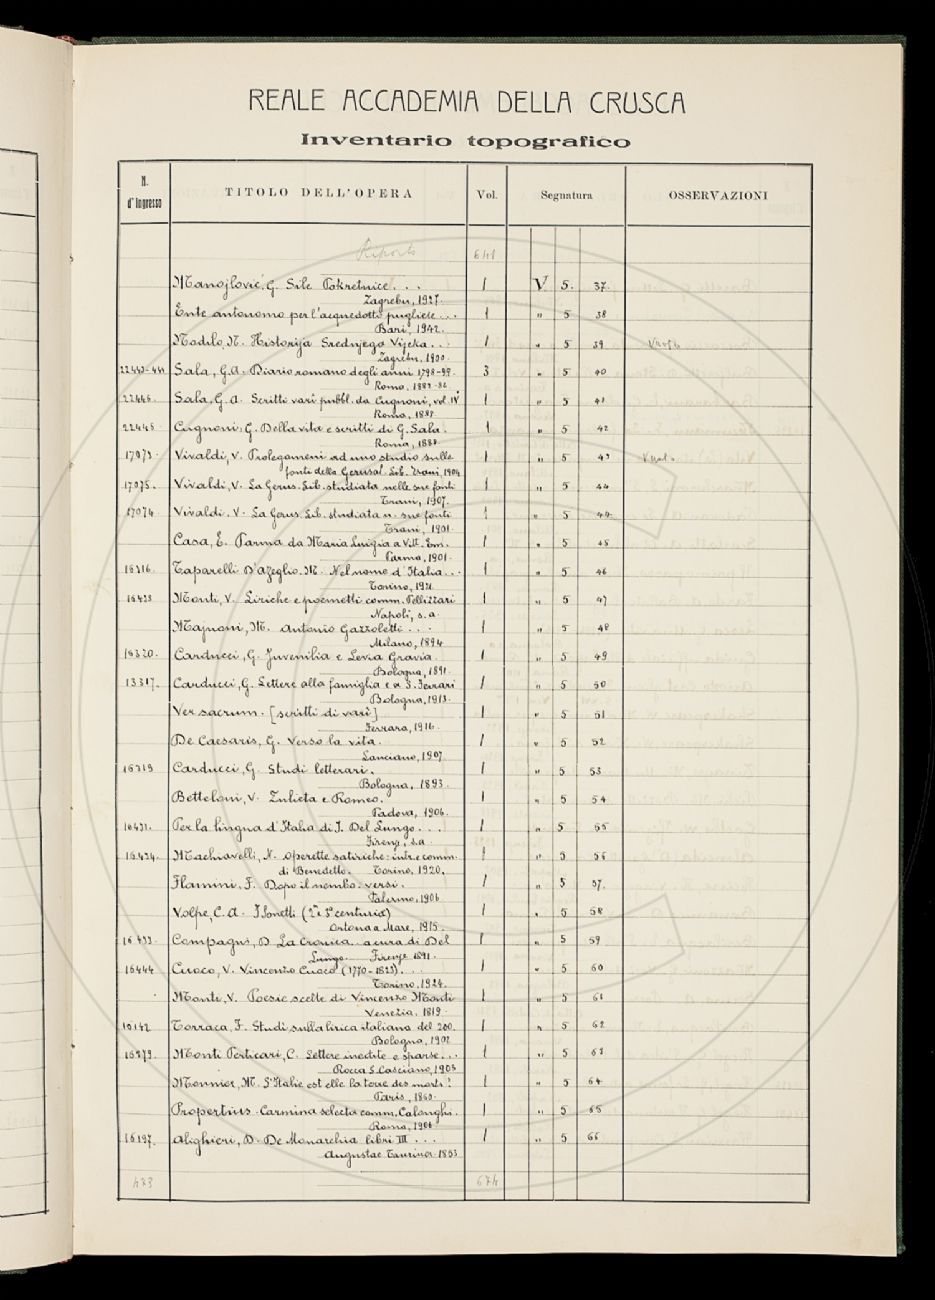 REALE ACCADEMIA DELLA CRUSCA
Inventario topografico
N. d'Ingresso TITOLO DELL'OPERA Vol. Segnatura OSSERVAZIONI
Riporto 641
Manojlović, G. Sile Pokretnice . . . 1 V 5. 37.
Zagrebu, 1927.
Ente autonomo per l'acquedotto pugliese . . . 1 " 5 38
Bari, 1942.
Nodilo, N. Historija Srednjega Vijeka . . . 1 " 5 39 Vuoto
Zagrebu, 1900.
22443-444 Sala, G. A. Diario romano degli anni 1798-99. 3 " 5 40
Roma, 1882-86
22446. Sala, G. A. Scritti vari pubbl. da Cugnoni, vol. IV 1 " 5 41
Roma, 1888
22445 Cugnoni, G. Della vita e scritti di G. Sala. 1 " 5 42
Roma, 1888.
17073. Vivaldi, V. Prolegomeni ad uno studio sulle 1 " 5 43 Vuoto
fonti della Gerusal. Lib. Trani, 1904
17075. Vivaldi, V. La Gerus. Lib. studiata nelle sue fonti 1 " 5 44
Trani, 1907.
17074 Vivaldi. V. La Gerus. Lib. studiata n. sue fonti 1 " 5 44.
Trani, 1901.
Casa, E. Parma da Maria Luigia a Vitt. Em. 1 " 5 45
Parma, 1901.
16316. Taparelli D'Azeglio. M. Nel nome d'Italia . . . 1 " 5 46
Torino, 1921.
16438 Monti, V. Liriche e poemetti comm. Pellizzari 1 " 5 47
Napoli, s. a.
Majnoni, M. Antonio Gazzoletti . . . 1 " 5 48
Milano, 1894
19320. Carducci, G. Juvenilia e Levia Gravia. 1 " 5 49
Bologna, 1891.
13317. Carducci, G. Lettere alla famiglia e a S. Ferrari 1 " 5 50
Bologna, 1913.
Ver sacrum. [scritti di varî] 1 " 5 51
Ferrara, 1916.
De Caesaris, G. Verso la vita. 1 " 5 52
Lanciano, 1907
16319 Carducci, G. Studi letterari. 1 " 5 53
Bologna, 1893.
Betteloni, V. Zulieta e Romeo. 1 " 5 54
Padova, 1906.
16431. Per la lingua d'Italia di I. Del Lungo . . . 1 " 5 55
Firenze, s.a
16434. Machiavelli, N. Operette satiriche: intr. e comm. 1 " 5 56
di Benedetto. Torino, 1920.
Flamini, F. Dopo il nembo: versi. 1 " 5 57.
Palermo, 1906
Volpe, C. A. I Sonetti (2ª e 3ª centuria) 1 " 5 58
Ortona a Mare, 1915.
16433. Compagni, D La Cronica . a cura di Del 1 " 5 59
Lungo. Firenze 1891.
16444 Cuoco, V. Vincenzo Cuoco (1770-1823). . . 1 " 5 60
Torino, 1924.
Monti, V. Poesie scelte di Vincenzo Monti 1 " 5 61
Venezia, 1819.
16142 Torraca, F. Studi sulla lirica italiana del 200. 1 " 5 62
Bologna, 1902
16379. Monti Perticari, C. Lettere inedite e sparse . . . 1 " 5 63
Rocca S. Casciano, 1903
Monnier, M. L'Italie est elle la terre des morts? 1 " 5 64
Paris, 1860.
Propertius. Carmina selecta comm. Calonghi. 1 " 5 65
Roma, 1906
16197. Alighieri, D. De Monarchia libri III . . . 1 " 5 66
Augustae Taurinor. 1853
433 674